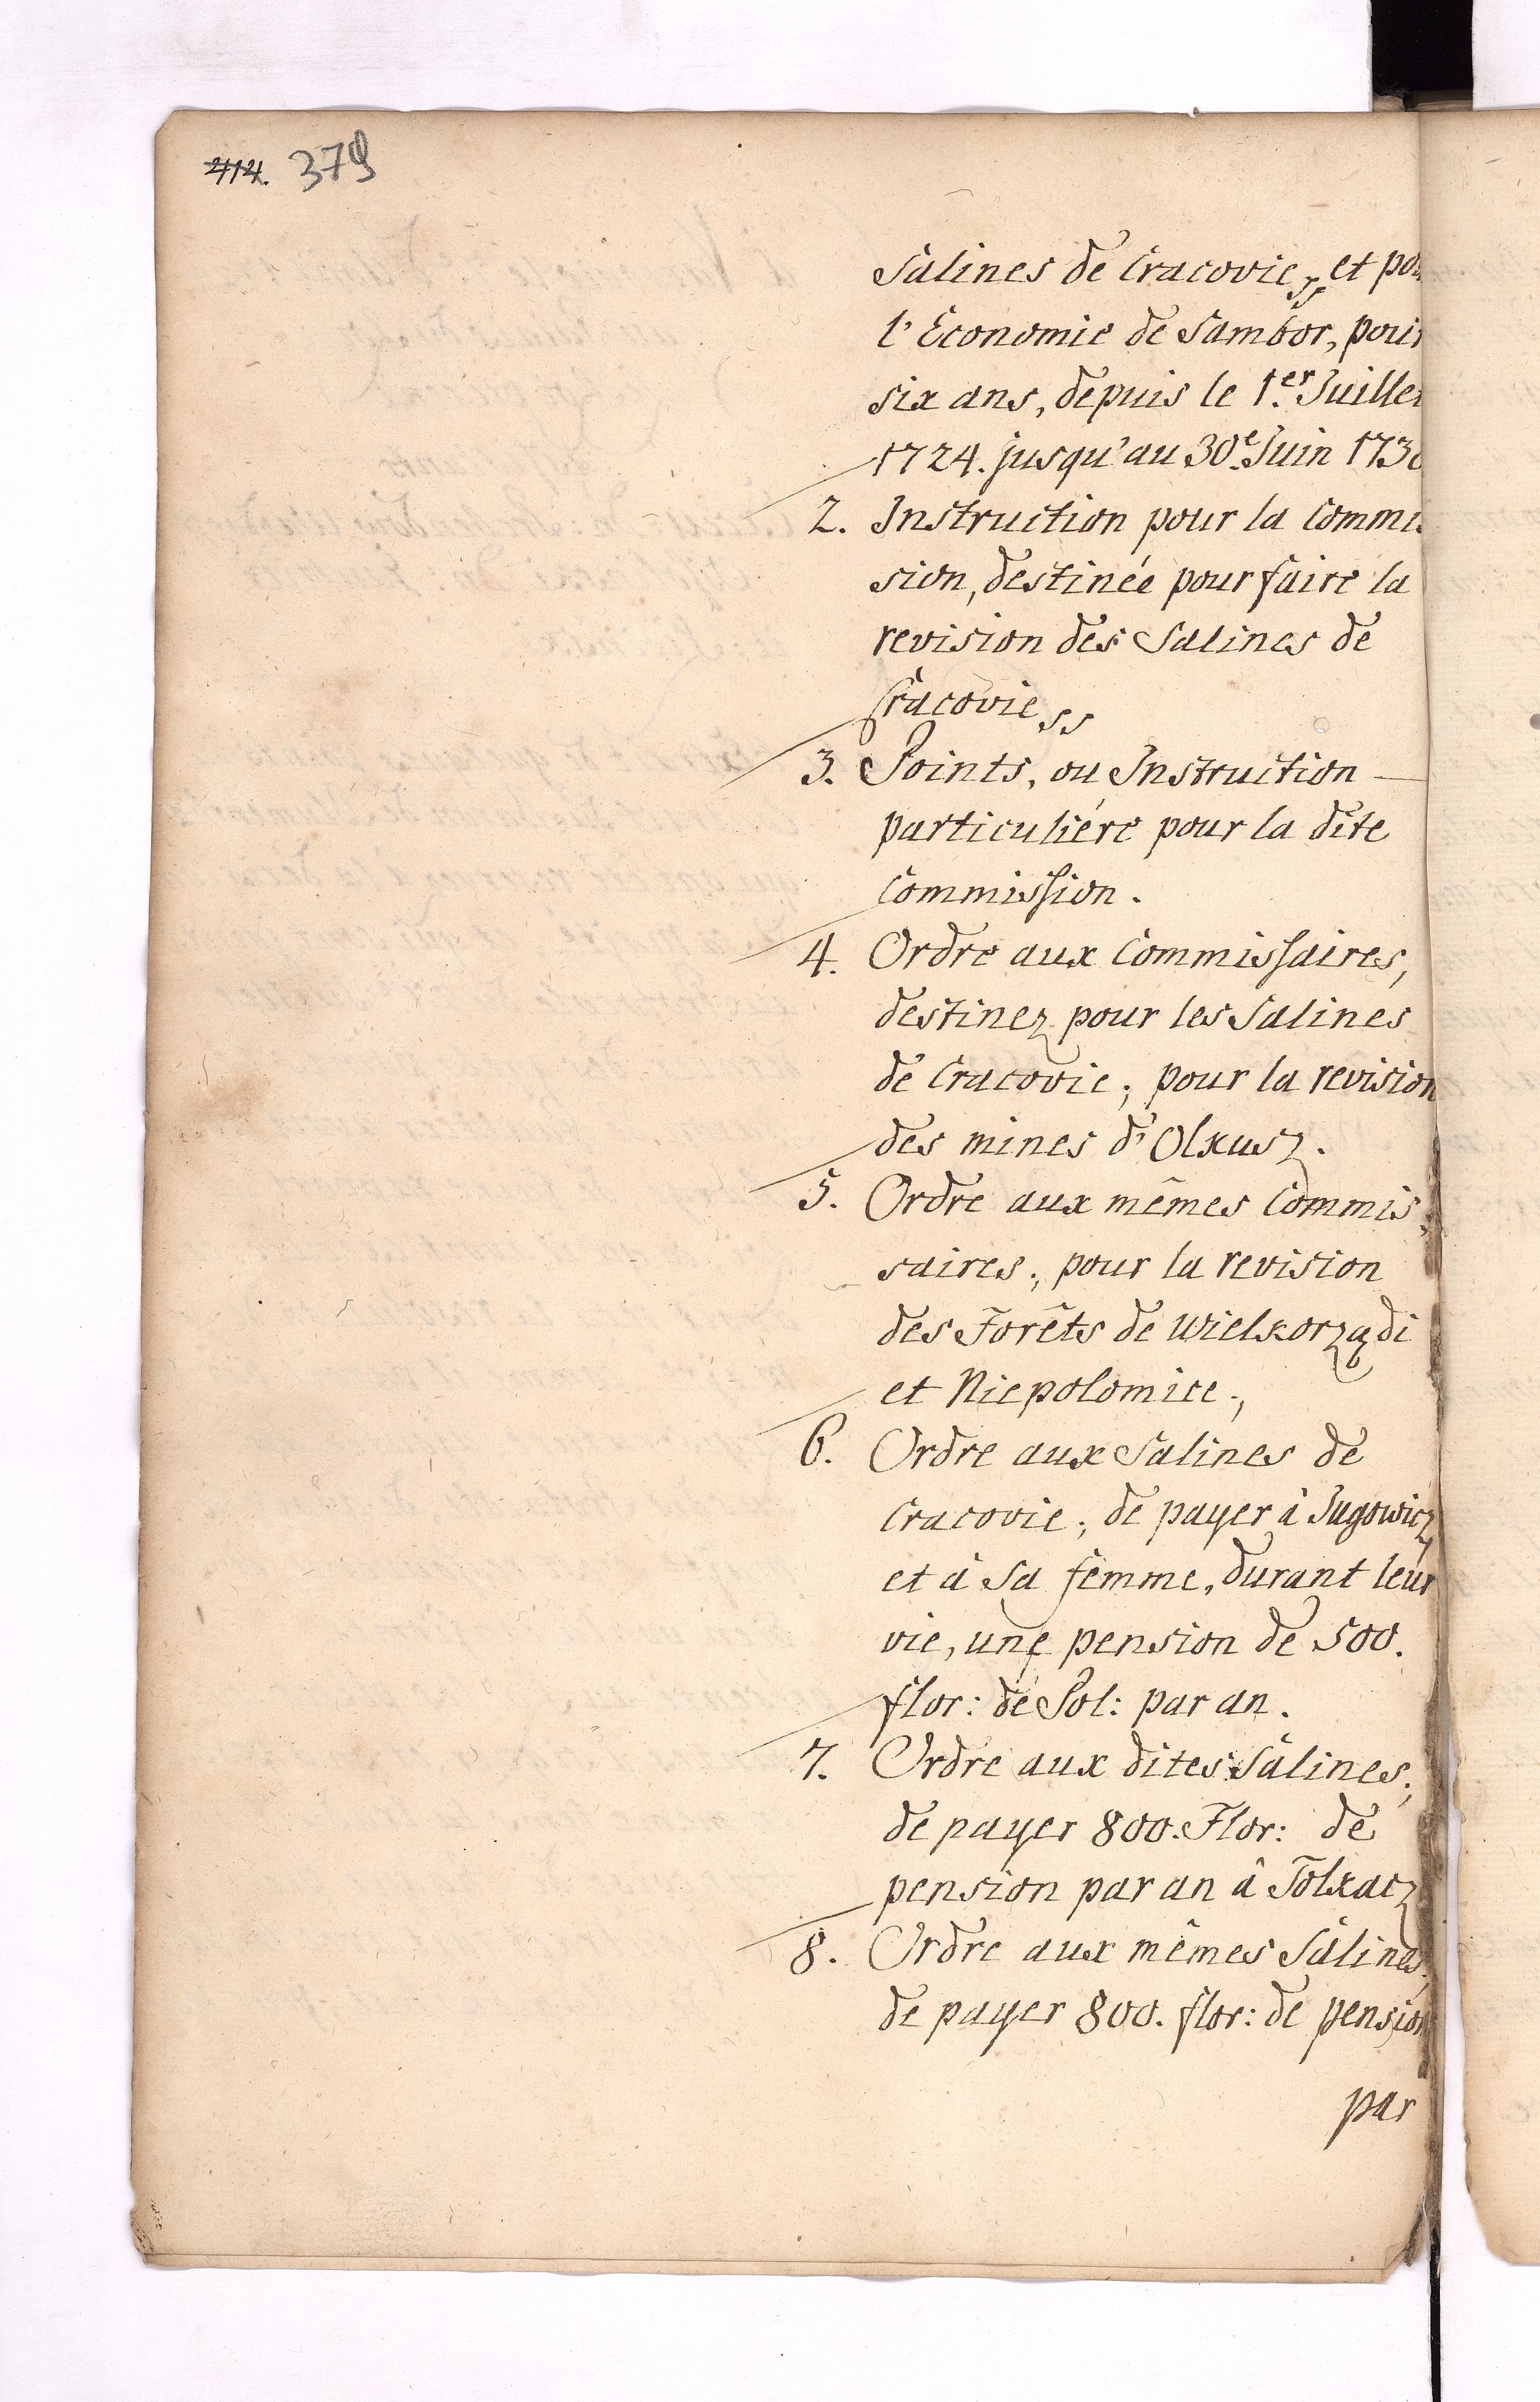 414. 379
Salines de Cracovie, et pou
l'Economie de Sambor, pour
six ans, depuis le 1.er Juillet
1724. jusqu'au 30.e Juin 1730
2. Instruction pour la Commis
sion, destinée pour faire la
revision des Salines de
Cracovie
3. Points, ou Instruction
particuliére pour la dite
Commission.
4. Ordre aux Commissaires,
destinez pour les Salines
de Cracovie; pour la revision
des mines d'Olkusz.
5. Ordre aux mêmes Commis
saires; pour la revision
des Forêts de Wielkorządi
et Niepolomice;
6. Ordre aux Salines de
Cracovie; de payer à Jugowicz
et à Sa femme, durant leur
vie, une pension de 500.
flor: de Pol: par an.
7. Ordre aux dites Salines;
de payer 800. Flor: de
pension par an â Tolkacz
8. Ordre aux mêmes Salines,
de payer 800. flor: de pension
par